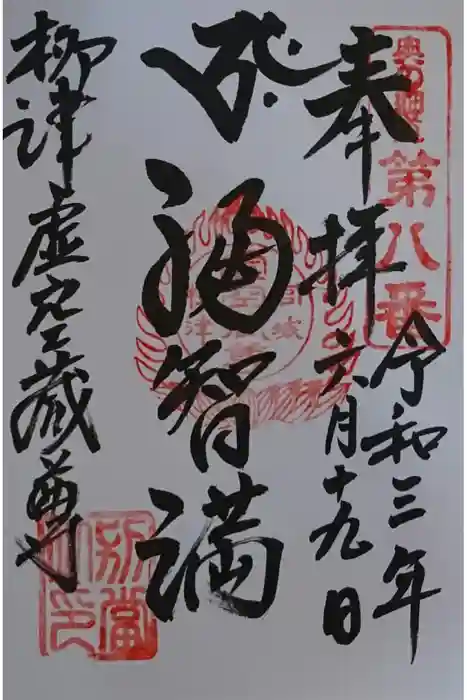 第八番
奉拝
令和三年
六月十九日
福智満
柳津虚空蔵尊
別當
之印